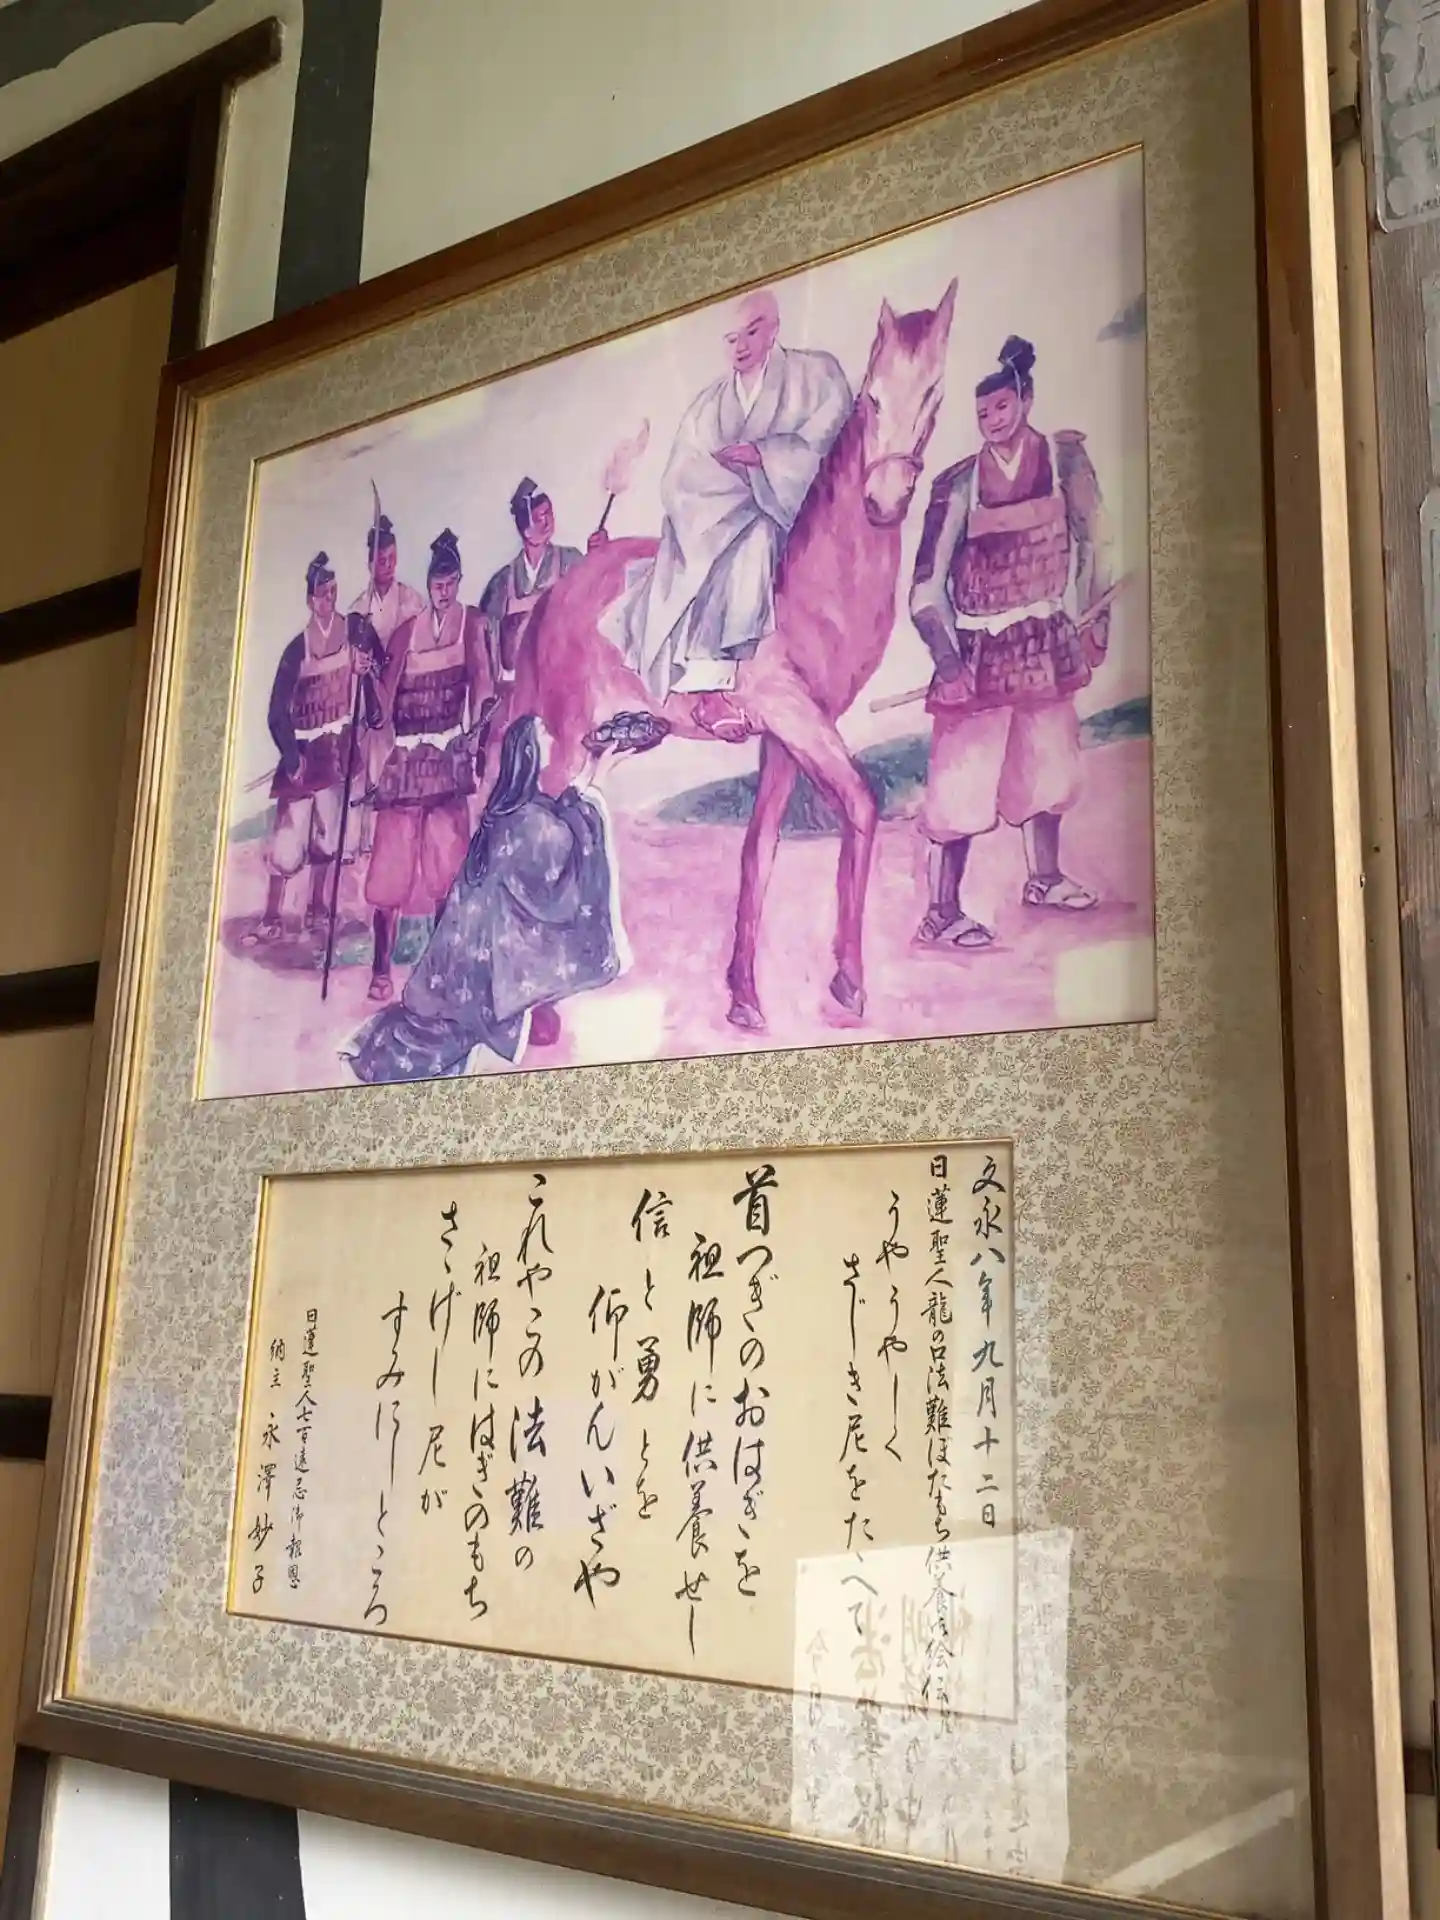 文永八年九月十二日
日蓮聖人龍の口法難ぼたもち供養
うやうやしく
さじき尼をたゝへて
首つぎのおはぎを
祖師に供養せし
信と勇とを
仰がんいざや
これやこの法難の
祖師にはぎのもち
さゝげし尼が
すみにしところ
日蓮聖人七百遠忌御報恩
納主 永澤妙子